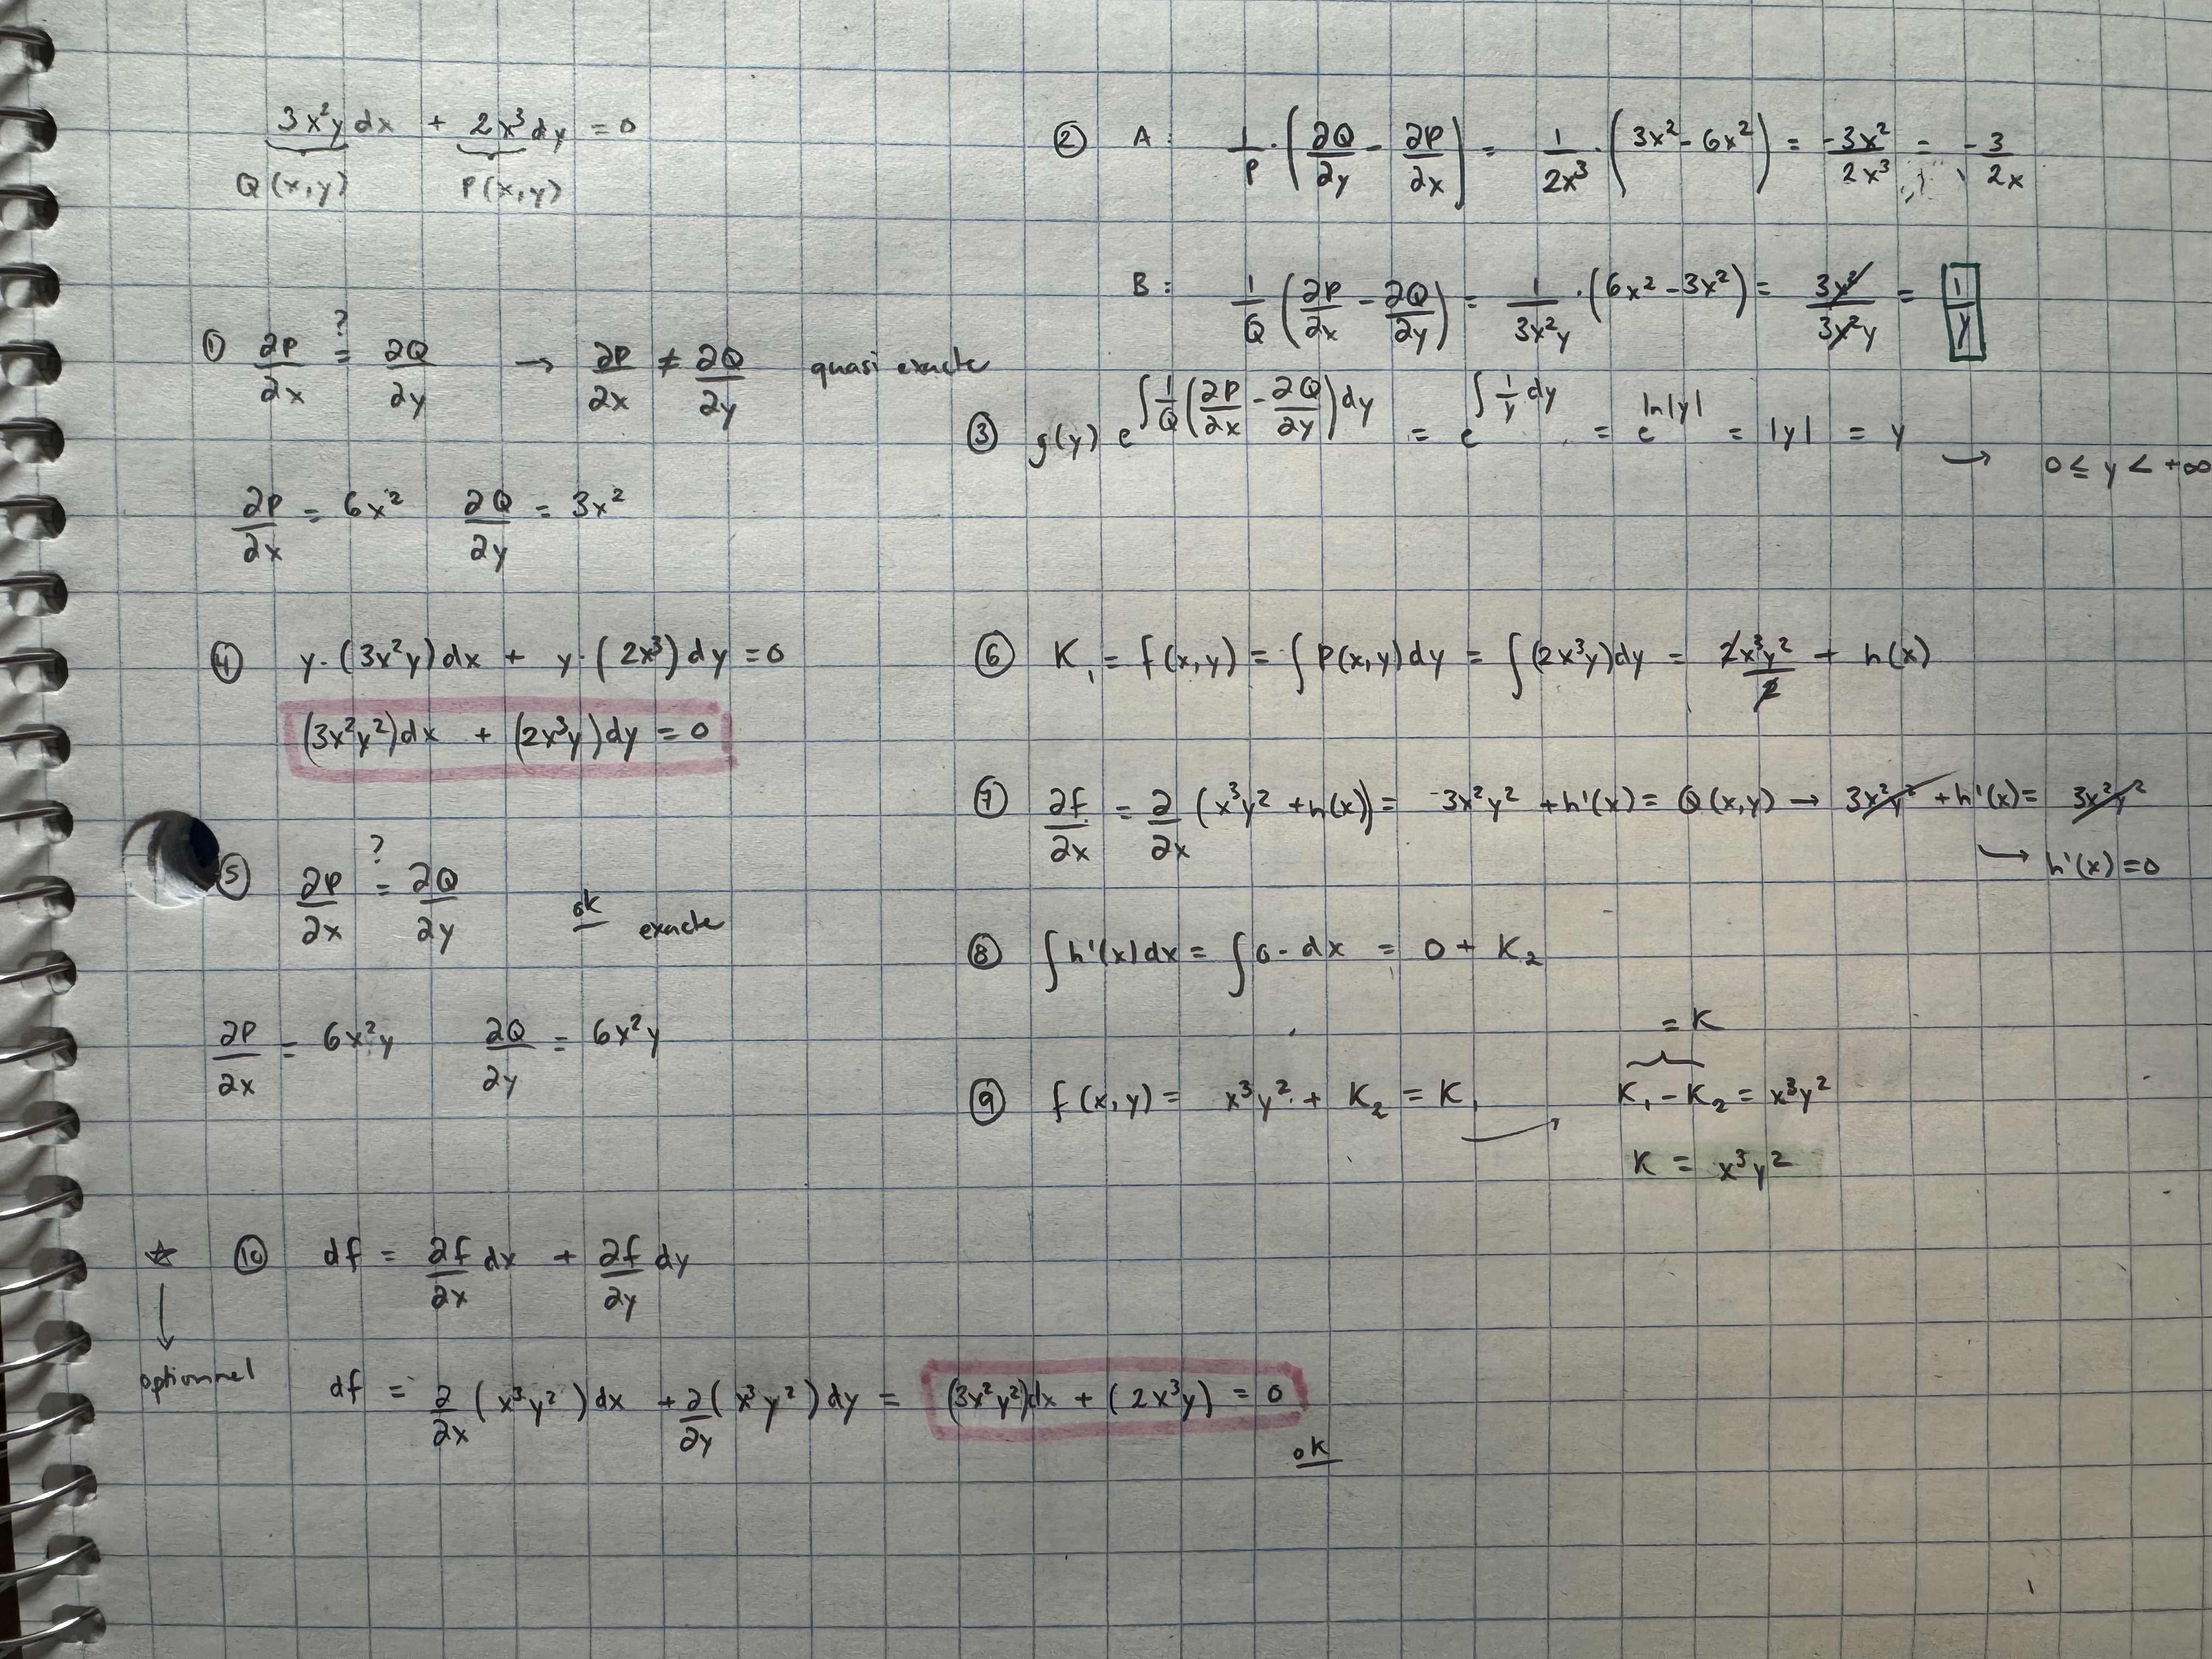 3x²y dx + 2x³ dy = 0
Q(x,y) P(x,y)
① ∂P/∂x ?= ∂Q/∂y → ∂P/∂x ≠ ∂Q/∂y quasi exacte
∂P/∂x = 6x² ∂Q/∂y = 3x²
② A: 1/P · (∂Q/∂y - ∂P/∂x) = 1/2x³ · (3x² - 6x²) = -3x²/2x³ = -3/2x
B: 1/Q (∂P/∂x - ∂Q/∂y) = 1/3x²y · (6x² - 3x²) = 3x²/3x²y = 1/y
③ g(y) e^(∫ 1/Q (∂P/∂x - ∂Q/∂y) dy) = e^(∫ 1/y dy) = e^(ln|y|) = |y| = y → 0 ≤ y < +∞
④ y · (3x²y) dx + y · (2x³) dy = 0
(3x²y²)dx + (2x³y)dy = 0
⑤ ∂P/∂x ?= ∂Q/∂y ok exacte
∂P/∂x = 6x²y ∂Q/∂y = 6x²y
⑥ K₁ = f(x,y) = ∫ P(x,y) dy = ∫ (2x³y)dy = 2x³y²/2 + h(x)
⑦ ∂f/∂x = ∂/∂x (x³y² + h(x)) = 3x²y² + h'(x) = Q(x,y) → 3x²y² + h'(x) = 3x²y²
→ h'(x) = 0
⑧ ∫ h'(x) dx = ∫ 0 · dx = 0 + K₂
⑨ f(x,y) = x³y² + K₂ = K₁ → K₁ - K₂ = x³y²
= K
K = x³y²
☆ ⑩ df = ∂f/∂x dx + ∂f/∂y dy
↓
optionnel df = ∂/∂x (x³y²) dx + ∂/∂y (x³y²) dy = (3x²y²)dx + (2x³y) = 0
ok